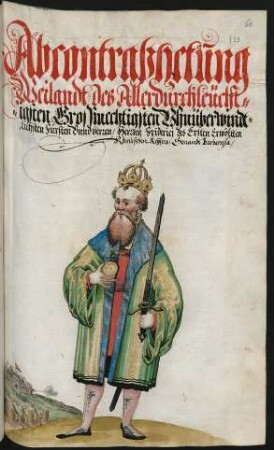 Abcontrafhetung
Weilandt des Allerdurchleücht=
=igsten Großmechtigsten Vhnüberwindt=
lichsten Fürsten Vnnd herren / Herren Friderici des Ersten Erwölten
Römischen Kaÿsers. Genandt Barbarossa /